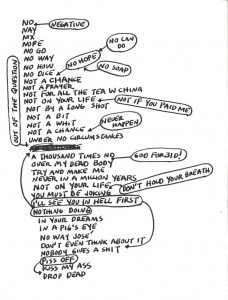 NO
NEGATIVE
NAY
NIX
NOPE
NO GO
NO CAN
DO
NO WAY
NO HOW
NO HOPE
NO DICE
NO SOAP
NOT A CHANCE
NOT A PRAYER
NOT FOR ALL THE TEA IN CHINA
NOT ON YOUR LIFE
NOT IF YOU PAID ME
NOT BY A LONG SHOT
NOT A BIT
NOT A WHIT
NEVER
HAPPEN
NOT A CHANCE
UNDER NO CIRCUMSTANCES
OUT OF THE QUESTION
A THOUSAND TIMES NO
GOD FORBID!
OVER MY DEAD BODY
TRY AND MAKE ME
NEVER IN A MILLION YEARS
NOT ON YOUR LIFE
DON'T HOLD YOUR BREATH
YOU MUST BE JOKING
I'LL SEE YOU IN HELL FIRST
NOTHING DOING
IN YOUR DREAMS
IN A PIG'S EYE
NO WAY JOSE
DON'T EVEN THINK ABOUT IT
NOBODY GIVES A SHIT
PISS OFF
KISS MY ASS
DROP DEAD